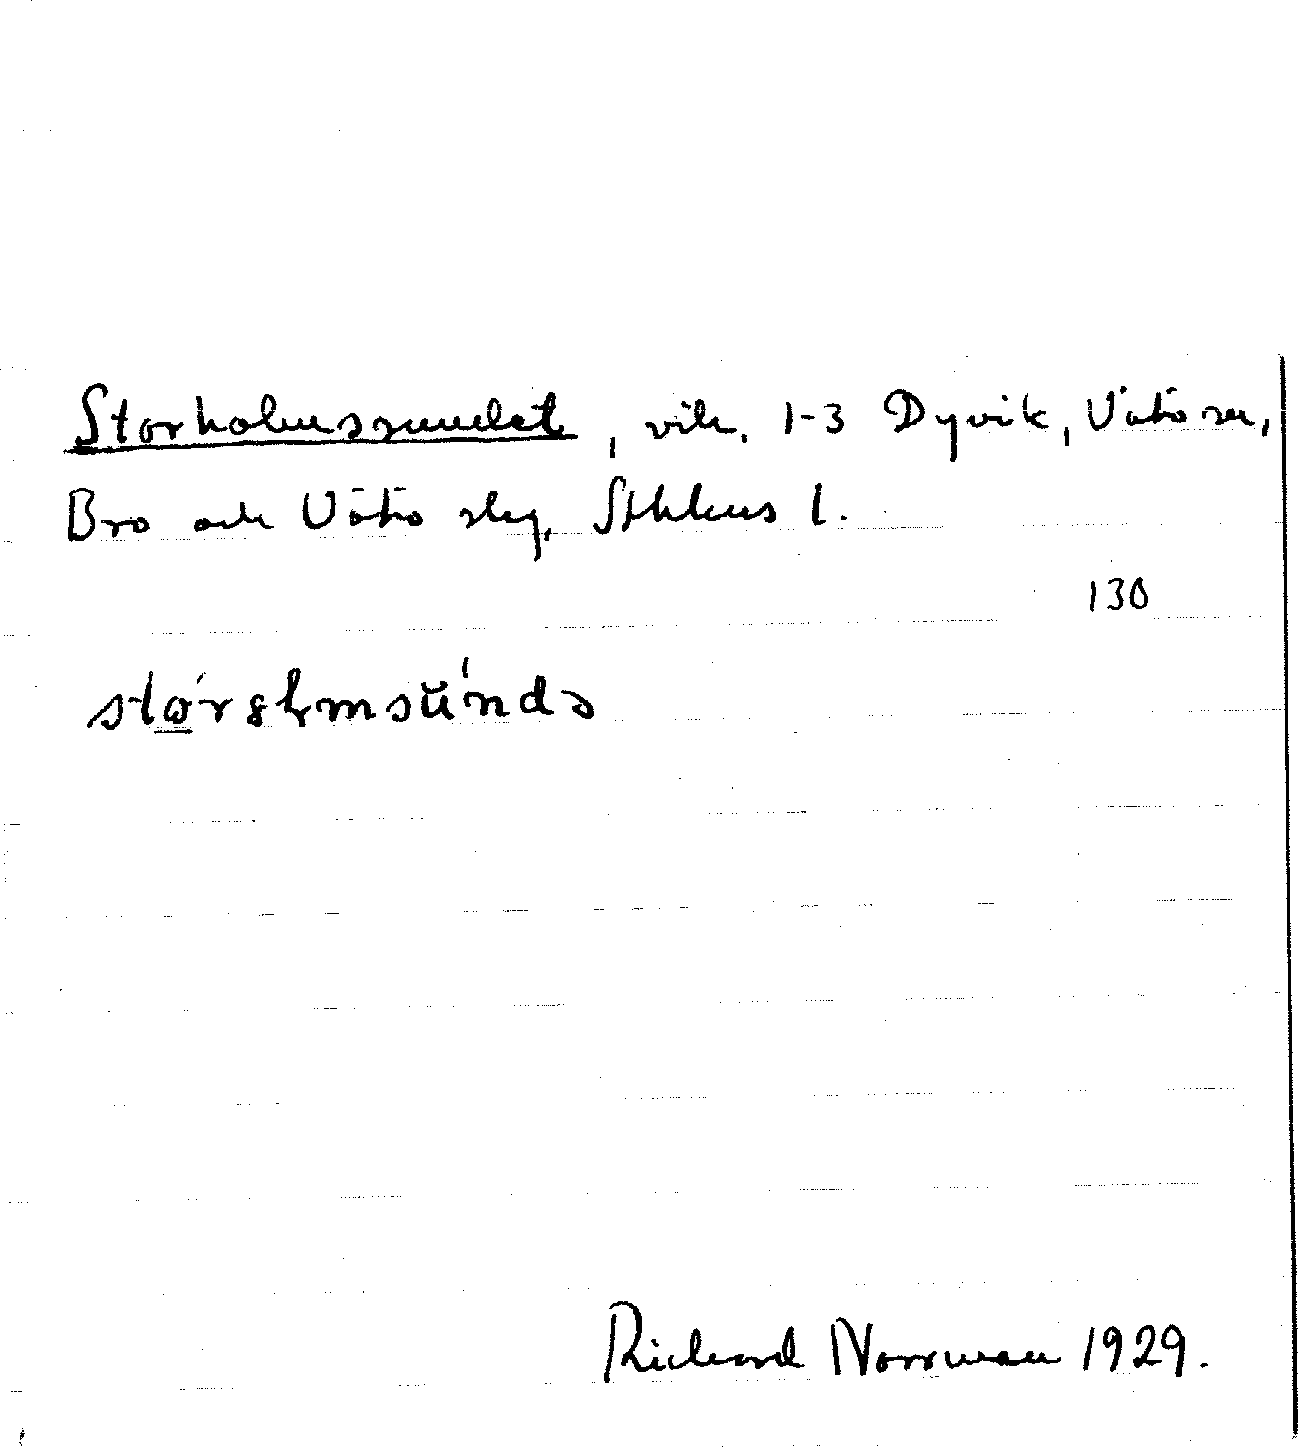 Storholmssundet, vik. 1-3 Dyvik, Vätö sn,
Bro och Vätö skg, Sthlms l.
130
Richard Norrman 1929.